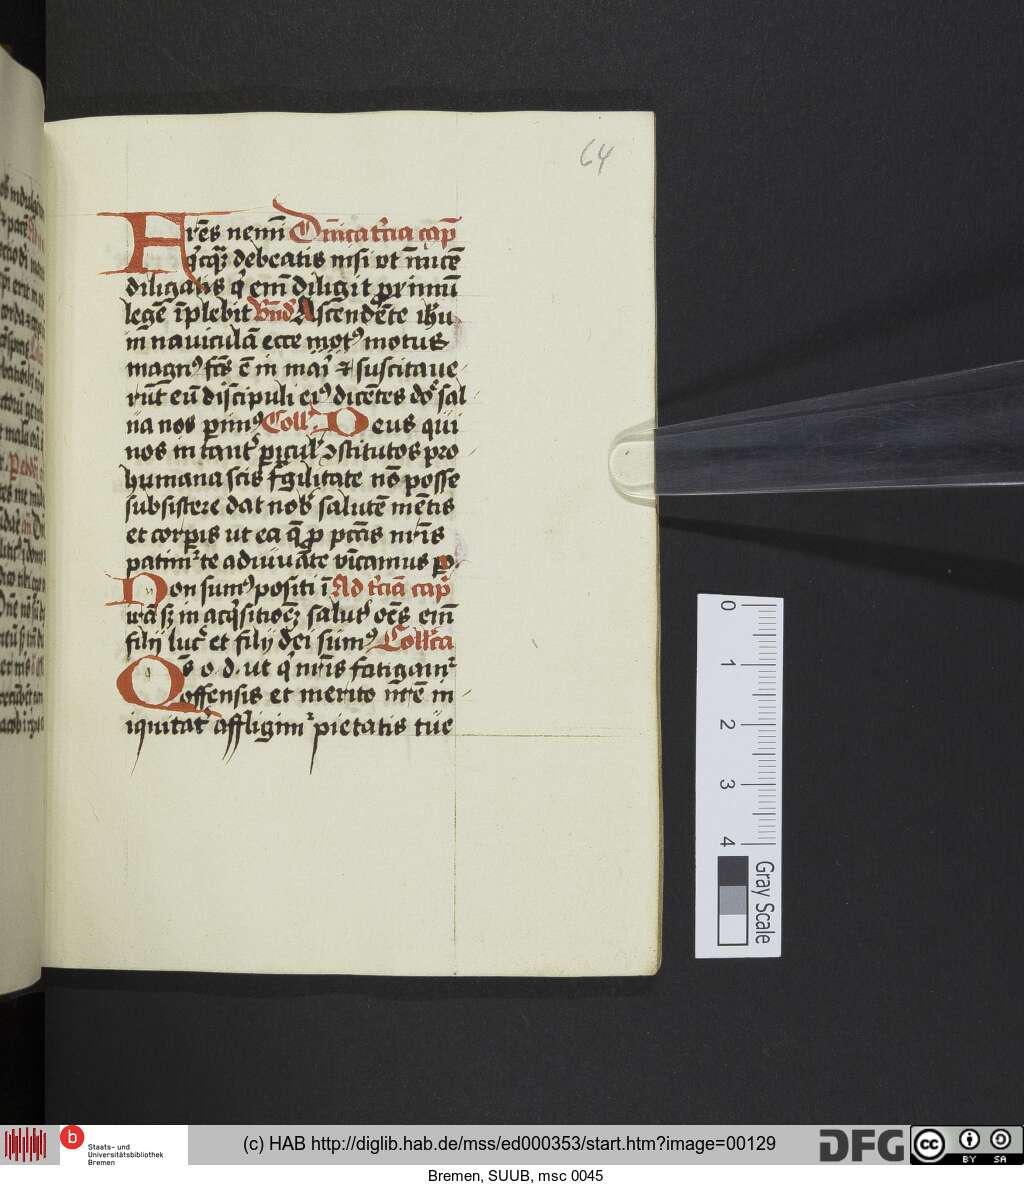 64
Fr̄es nemī Dn̄ica t̄cia cap̄
q̓cq̓ꝫ debeatis nisi vt īnuicē
diligatis q̓ em̄ diligit primū
legē īplebit Bn̄d᷒ Ascendēte ih̄u
in nauiculā ecce mot᷒ motus
magn᷒ fc̄s ē in mari ⁊ suscitaue
rūt eū discipuli ei᷒ dicētes dn̄e sal
ua nos perim᷒ Coll̄ Deus qui
nos in tant᷒ ꝑicul᷒ ꝯstitutos pro
humana scis fragilitate nō posse
subsistere da nob᷒ salutē mētis
et corꝑis ut ea q̄ ꝓ pctīs nr̄is
patimur te adiuuāte vīcamus ꝑ
Non sum᷒ positi ī Ad t̄ciā cap̄
irā sꝫ in acq̓sitiōeꝫ salut᷒ oēs em̄
filij luc᷒ et filij dei sum᷒ Coll̄cta
Qs o. d. ut q̓ nr̄is fatigamur
offensis et merito nr̄e in
iquitat᷒ affligimur pietatis tue
0
1
2
3
4
Gray Scale
b
Staats- und
Universitätsbibliothek
Bremen
(c) HAB http://diglib.hab.de/mss/ed000353/start.htm?image=00129
DFG
cc
BY SA
Bremen, SUUB, msc 0045